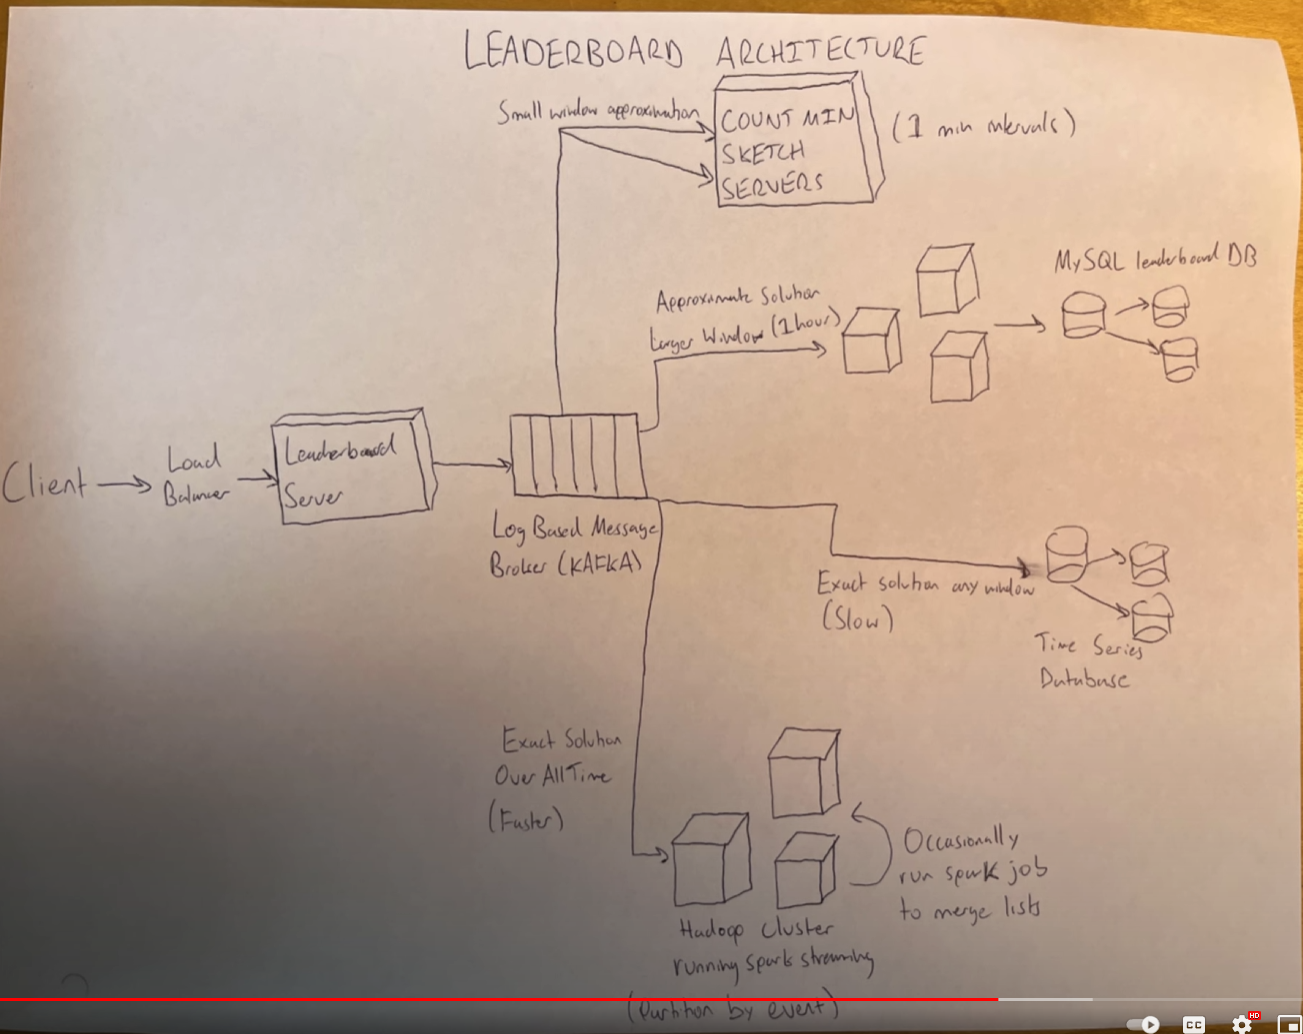 LEADERBOARD ARCHITECTURE
Small window approximation
COUNT MIN
SKETCH
SERVERS
(1 min intervals)
MySQL leaderboard DB
Approximate Solution
Larger Window (1 hour)
Client
Load
Balancer
Leaderboard
Server
Log Based Message
Broker (KAFKA)
Exact solution any window
(Slow)
Time Series
Database
Exact Solution
Over All Time
(Faster)
Occasionally
run spark job
to merge lists
Hadoop Cluster
running spark streaming
(Partition by event)
CC
HD